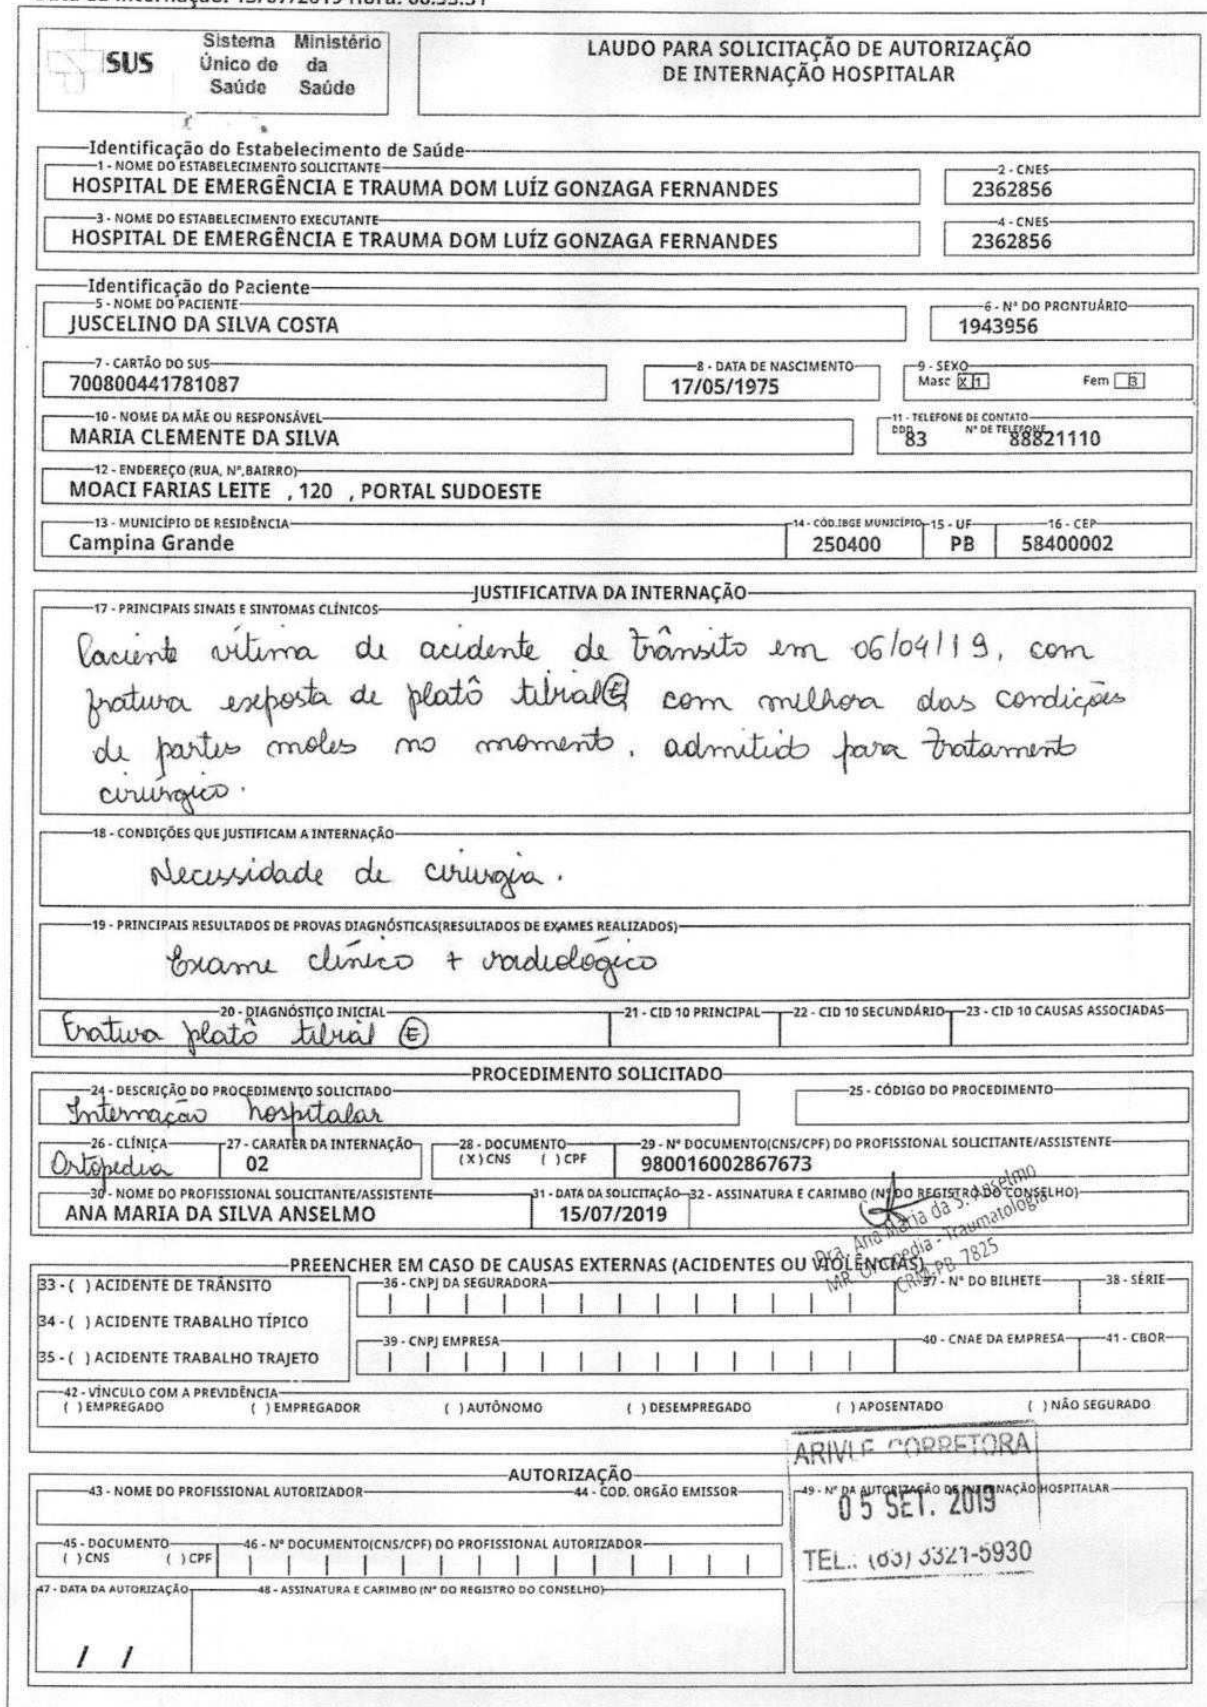 SUS
Sistema Único de Saúde
Ministério da Saúde
LAUDO PARA SOLICITAÇÃO DE AUTORIZAÇÃO
DE INTERNAÇÃO HOSPITALAR
Identificação do Estabelecimento de Saúde
1 - NOME DO ESTABELECIMENTO SOLICITANTE
HOSPITAL DE EMERGÊNCIA E TRAUMA DOM LUÍZ GONZAGA FERNANDES
2 - CNES
2362856
3 - NOME DO ESTABELECIMENTO EXECUTANTE
HOSPITAL DE EMERGÊNCIA E TRAUMA DOM LUÍZ GONZAGA FERNANDES
4 - CNES
2362856
Identificação do Paciente
5 - NOME DO PACIENTE
JUSCELINO DA SILVA COSTA
6 - Nº DO PRONTUÁRIO
1943956
7 - CARTÃO DO SUS
700800441781087
8 - DATA DE NASCIMENTO
17/05/1975
9 - SEXO
Masc X 1 Fem 3
10 - NOME DA MÃE OU RESPONSÁVEL
MARIA CLEMENTE DA SILVA
11 - TELEFONE DE CONTATO
DDD Nº DE TELEFONE
83 88821110
12 - ENDEREÇO (RUA, Nº,BAIRRO)
MOACI FARIAS LEITE , 120 , PORTAL SUDOESTE
13 - MUNICÍPIO DE RESIDÊNCIA
Campina Grande
14 - CÓD.IBGE MUNICÍPIO
250400
15 - UF
PB
16 - CEP
58400002
JUSTIFICATIVA DA INTERNAÇÃO
17 - PRINCIPAIS SINAIS E SINTOMAS CLÍNICOS
Paciente vítima de acidente de trânsito em 06/04/19, com
fratura exposta de platô tibial (E) com milhora das condições
de partes moles no momento, admitido para tratamento
cirúrgico.
18 - CONDIÇÕES QUE JUSTIFICAM A INTERNAÇÃO
Necessidade de cirurgia.
19 - PRINCIPAIS RESULTADOS DE PROVAS DIAGNÓSTICAS(RESULTADOS DE EXAMES REALIZADOS)
Exame clínico + radiológico
20 - DIAGNÓSTICO INICIAL
Fratura platô tibial (E)
21 - CID 10 PRINCIPAL
22 - CID 10 SECUNDÁRIO
23 - CID 10 CAUSAS ASSOCIADAS
PROCEDIMENTO SOLICITADO
24 - DESCRIÇÃO DO PROCEDIMENTO SOLICITADO
Internação hospitalar
25 - CÓDIGO DO PROCEDIMENTO
26 - CLÍNICA
Ortopedia
27 - CARATER DA INTERNAÇÃO
02
28 - DOCUMENTO
(X) CNS ( ) CPF
29 - Nº DOCUMENTO(CNS/CPF) DO PROFISSIONAL SOLICITANTE/ASSISTENTE
980016002867673
30 - NOME DO PROFISSIONAL SOLICITANTE/ASSISTENTE
ANA MARIA DA SILVA ANSELMO
31 - DATA DA SOLICITAÇÃO
15/07/2019
32 - ASSINATURA E CARIMBO (Nº DO REGISTRO DO CONSELHO)
Dra. Ana Maria da S. Anselmo
MR Ortopedia - Traumatologia
CRM-PB 7825
PREENCHER EM CASO DE CAUSAS EXTERNAS (ACIDENTES OU VIOLÊNCIAS)
33 - ( ) ACIDENTE DE TRÂNSITO
34 - ( ) ACIDENTE TRABALHO TÍPICO
35 - ( ) ACIDENTE TRABALHO TRAJETO
36 - CNPJ DA SEGURADORA
37 - Nº DO BILHETE
38 - SÉRIE
39 - CNPJ EMPRESA
40 - CNAE DA EMPRESA
41 - CBOR
42 - VÍNCULO COM A PREVIDÊNCIA
( ) EMPREGADO ( ) EMPREGADOR ( ) AUTÔNOMO ( ) DESEMPREGADO ( ) APOSENTADO ( ) NÃO SEGURADO
AUTORIZAÇÃO
43 - NOME DO PROFISSIONAL AUTORIZADOR
44 - COD. ORGÃO EMISSOR
49 - Nº DA AUTORIZAÇÃO DE INTERNAÇÃO HOSPITALAR
CORRETORA
05 SET. 2019
TEL.: (83) 3321-5930
45 - DOCUMENTO
( ) CNS ( ) CPF
46 - Nº DOCUMENTO(CNS/CPF) DO PROFISSIONAL AUTORIZADOR
47 - DATA DA AUTORIZAÇÃO
/ /
48 - ASSINATURA E CARIMBO (Nº DO REGISTRO DO CONSELHO)